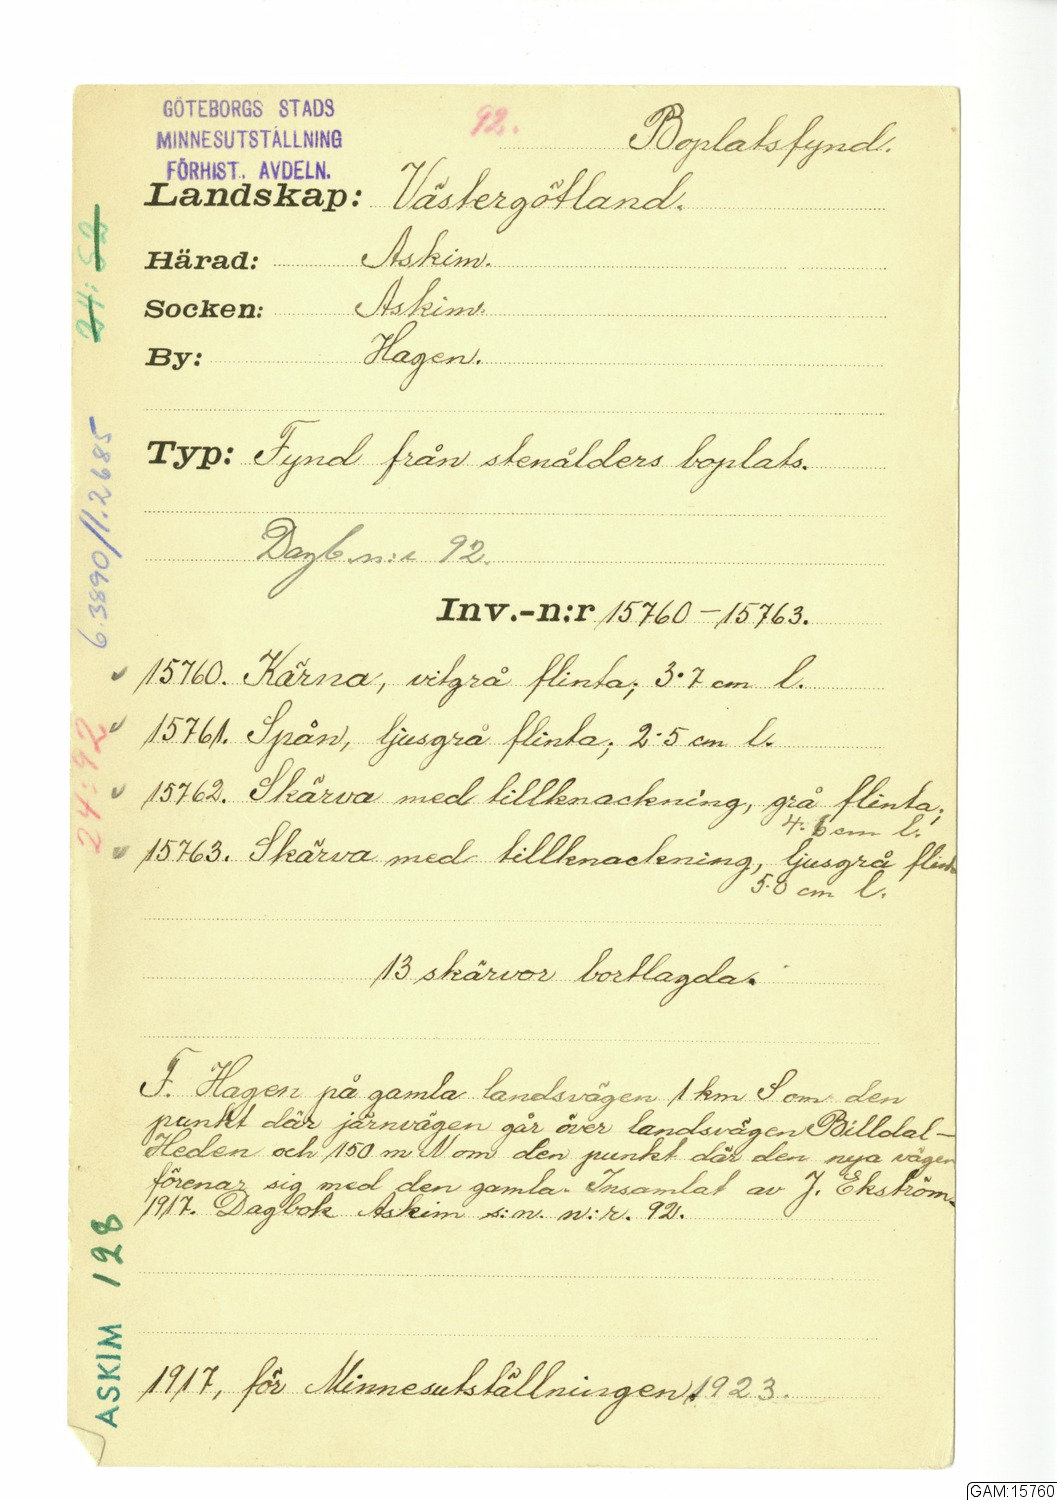 GÖTEBORGS STADS
MINNESUTSTÄLLNING
FÖRHIST. AVDELN.
92.
Boplatsfynd.
Landskap: Västergötland.
Härad: Askim.
Socken: Askim.
By: Hagen.
Typ: Fynd från stenålders boplats.
Dagb. n:r 92.
Inv.-n:r 15760-15763.
15760. Kärna, vitgrå flinta; 3.7 cm l.
15761. Spån, ljusgrå flinta; 2.5 cm l.
15762. Skärva med tillknackning, grå flinta;
4.6 cm l.
15763. Skärva med tillknackning, ljusgrå flinta
5.0 cm l.
13 skärvor bortlagda.
F. Hagen på gamla landsvägen 1 km S om den
punkt där järnvägen går över landsvägen Billdal-
Heden och 150 m N om den punkt där den nya vägen
förenar sig med den gamla. Insamlat av J. Ekström.
1917. Dagbok Askim s:n. n:r. 92.
1917, för Minnesutställningen 1923.
24:52
6.3890/1.2685
24:92
ASKIM 128
GAM:15760